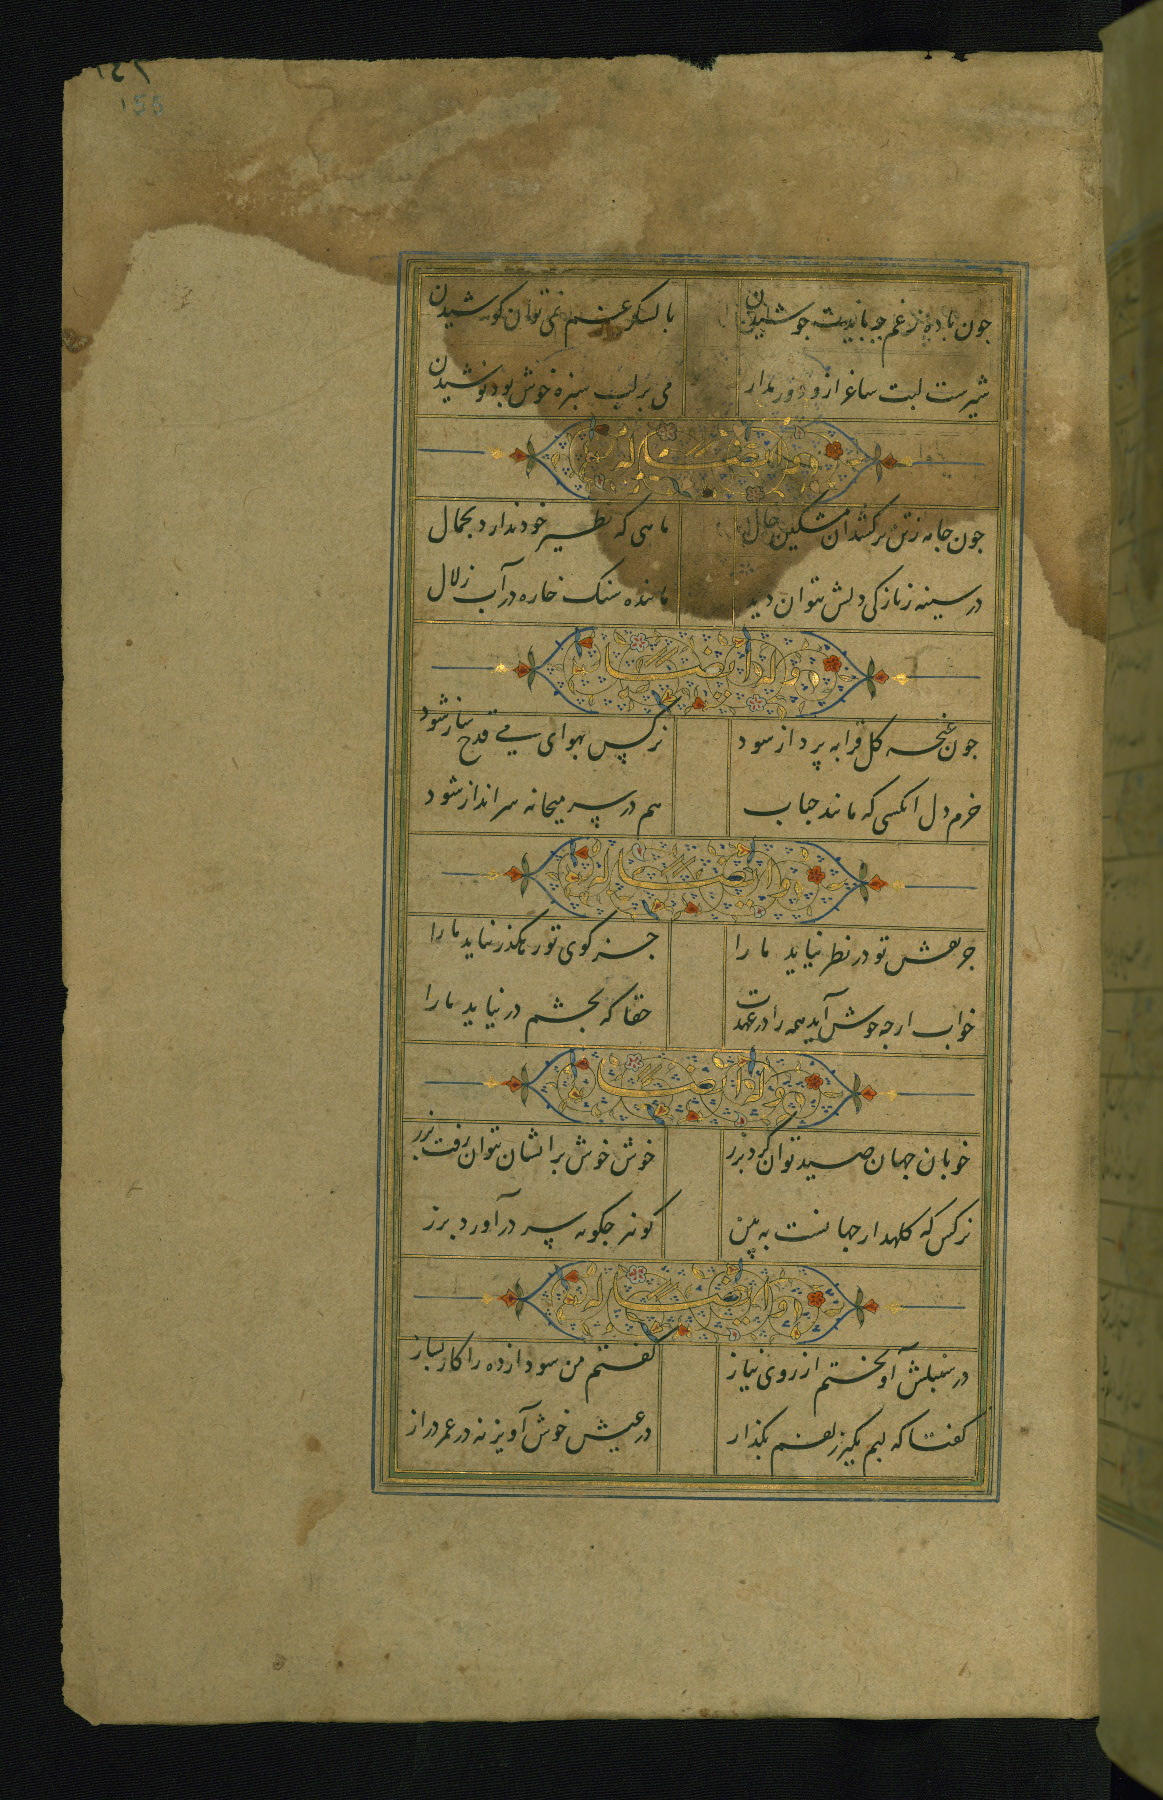 155
جون باده زغم جه بایدت جوشیدن
با لشکر غم نمی توان کوشیدن
شیرست لبت ساغر ازو دور مدار
می بر لب سبزه خوش بود نوشیدن
وله ایضا
جون جامه زتن برکشد آن مشکین خال
ماهی که نظیر خود ندارد بجمال
در سینه زنازکی دلش بتوان دید
ماننده سنک خاره در آب زلال
وله ایضا
جون غنچه کل قرابه پرداز شود
نرکس بهوای می قدح ساز شود
خرم دل انکسی که مانند حباب
هم در سر میخانه سر انداز شود
وله ایضا
جز نقش تو در نظر نیاید ما را
جز کوی تو رهکذر نیاید ما را
خواب ارجه خوش آید همه را در عهدت
حقا که بجشم در نیاید ما را
وله ایضا
خوبان جهان صید توان کرد بزر
خوش خوش بر ایشان بتوان رفت بزر
نرکس که کلهدار جهانست به بین
کونیز جکونه سر در آورد بزر
وله ایضا
در سنبلش آویختم از روی نیاز
کفتم من سودازده را کار بساز
کفتا که لبم بکیر زلفم بکذار
در عیش خوش آویز نه در عمر دراز